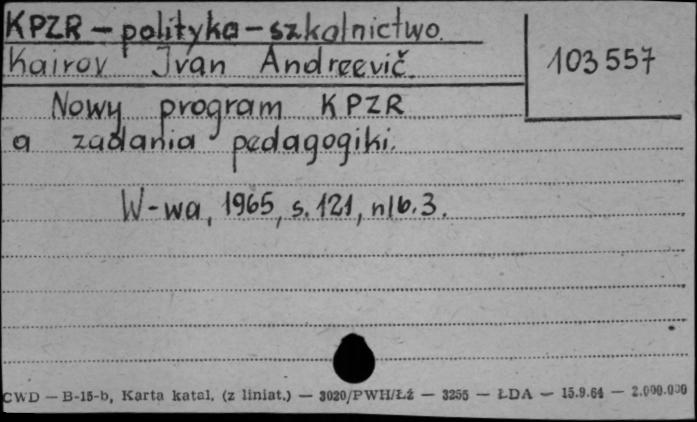 KPZR – polityka – szkolnictwo.
Kairov Ivan Andreevič.
103557
Nowy program KPZR
a zadania pedagogiki.
W-wa, 1965, s. 121, nlb. 3.
CWD — B-15-b, Karta katal. (z liniat.) — 3020/PWH/Łź — 3255 — ŁDA — 15.9.64 — 2.000.000